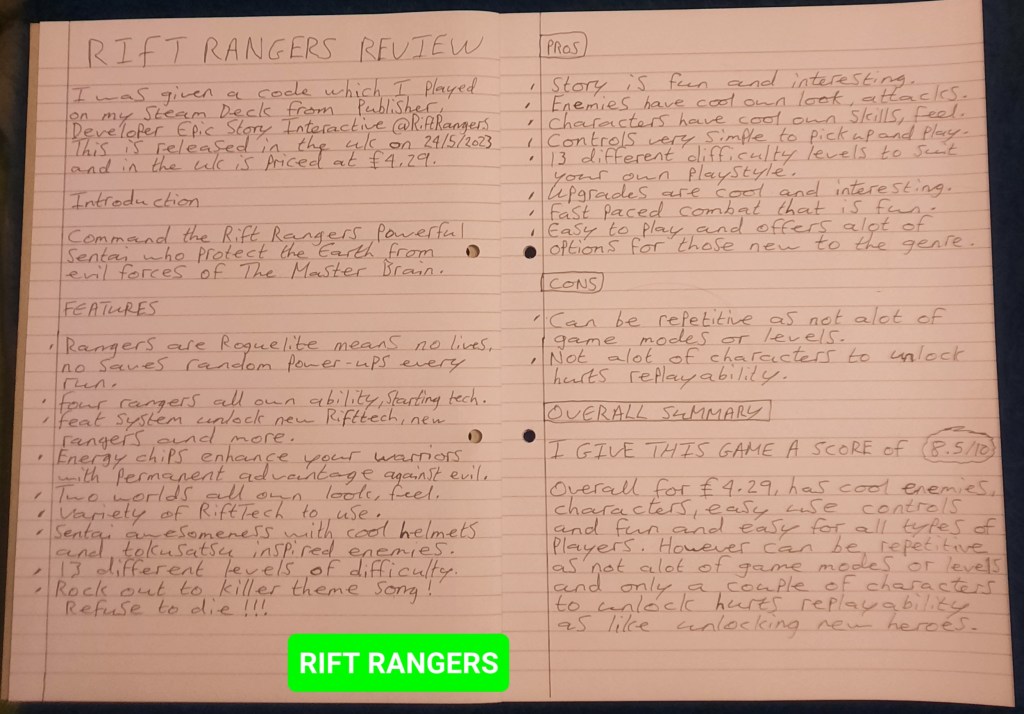 RIFT RANGERS REVIEW
I was given a code which I played
on my Steam Deck from Publisher,
Developer Epic Story Interactive @RiftRangers
This is released in the uk on 24/5/2023
and in the uk is priced at £4.29.
Introduction
Command the Rift Rangers powerful
Sentai who protect the Earth from
evil forces of The Master Brain.
FEATURES
• Rangers are Roguelite means no lives,
no saves random power-ups every
run.
• four rangers all own ability, starting tech.
• feat system unlock new Rifttech, new
rangers and more.
• Energy chips enhance your warriors
with permanent advantage against evil.
• Two worlds all own look, feel.
• Variety of RiftTech to use.
• Sentai awesomeness with cool helmets
and tokusatsu inspired enemies.
• 13 different levels of difficulty.
• Rock out to killer theme song!
Refuse to die!!!
PROS
• Story is fun and interesting.
• Enemies have cool own look, attacks.
• Characters have cool own skills, feel.
• Controls very simple to pick up and play.
• 13 different difficulty levels to suit
your own playstyle.
• Upgrades are cool and interesting.
• Fast paced combat that is fun.
• Easy to play and offers alot of
options for those new to the genre.
CONS
• Can be repetitive as not alot of
game modes or levels.
• Not alot of characters to unlock
hurts replayability.
OVERALL SUMMARY
I GIVE THIS GAME A SCORE OF 8.5/10
Overall for £4.29, has cool enemies,
characters, easy use controls
and fun and easy for all types of
players. However can be repetitive
as not alot of game modes or levels
and only a couple of characters
to unlock hurts replayability
as like unlocking new heroes.
RIFT RANGERS